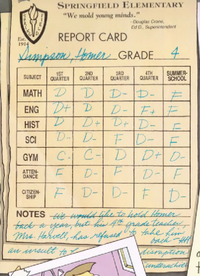 SPRINGFIELD ELEMENTARY
"We mold young minds."
Est.
REPORT CARD
Simpson, Homer GRADE 4
SUBJECT 1ST QUARTER 2ND QUARTER 3RD QUARTER 4TH QUARTER SUMMER-SCHOOL
MATH D D D- D- F
ENG D+ D D- F+ F
HIST D D+ D+ D- F
SCI D- D- F D- F
GYM C- C- D D+ D-
ATTEN-DANCE F D- D- D- F
CITIZEN-SHIP F D- D- F D-
NOTES We would like to hold Homer
back a year, but his 4th grade teacher
Mrs. has refused to take him
back